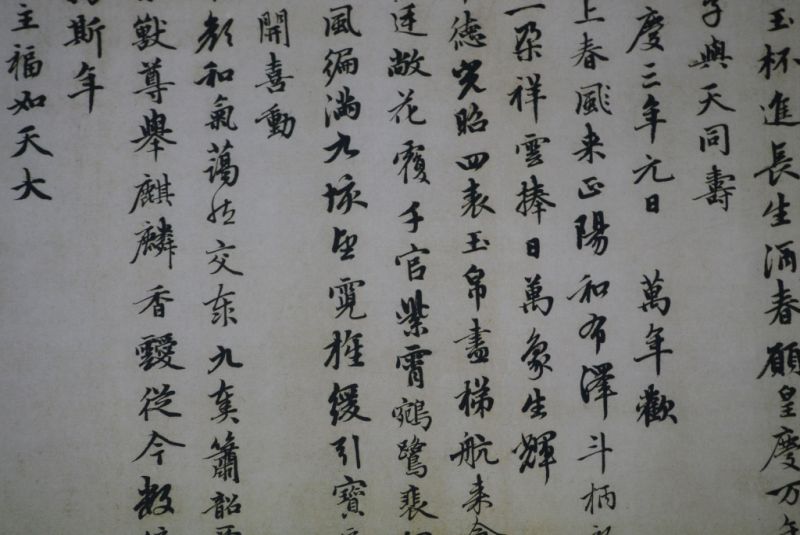 玉杯進長生酒春願皇慶万年
子與天同壽
慶三年元日 萬年歡
上春風来正陽和布澤斗柄
一朵祥雲捧日萬象生輝
德光昭四表玉帛盡梯航来會
廷敞花覆千官紫霄鵷鷺裴
風徧满九垓望霓旌緩引寶
開喜動
顏和氣藹然交泰九奏簫韶
獸尊舉麒麟香靉從今數
斯年
主福如天大